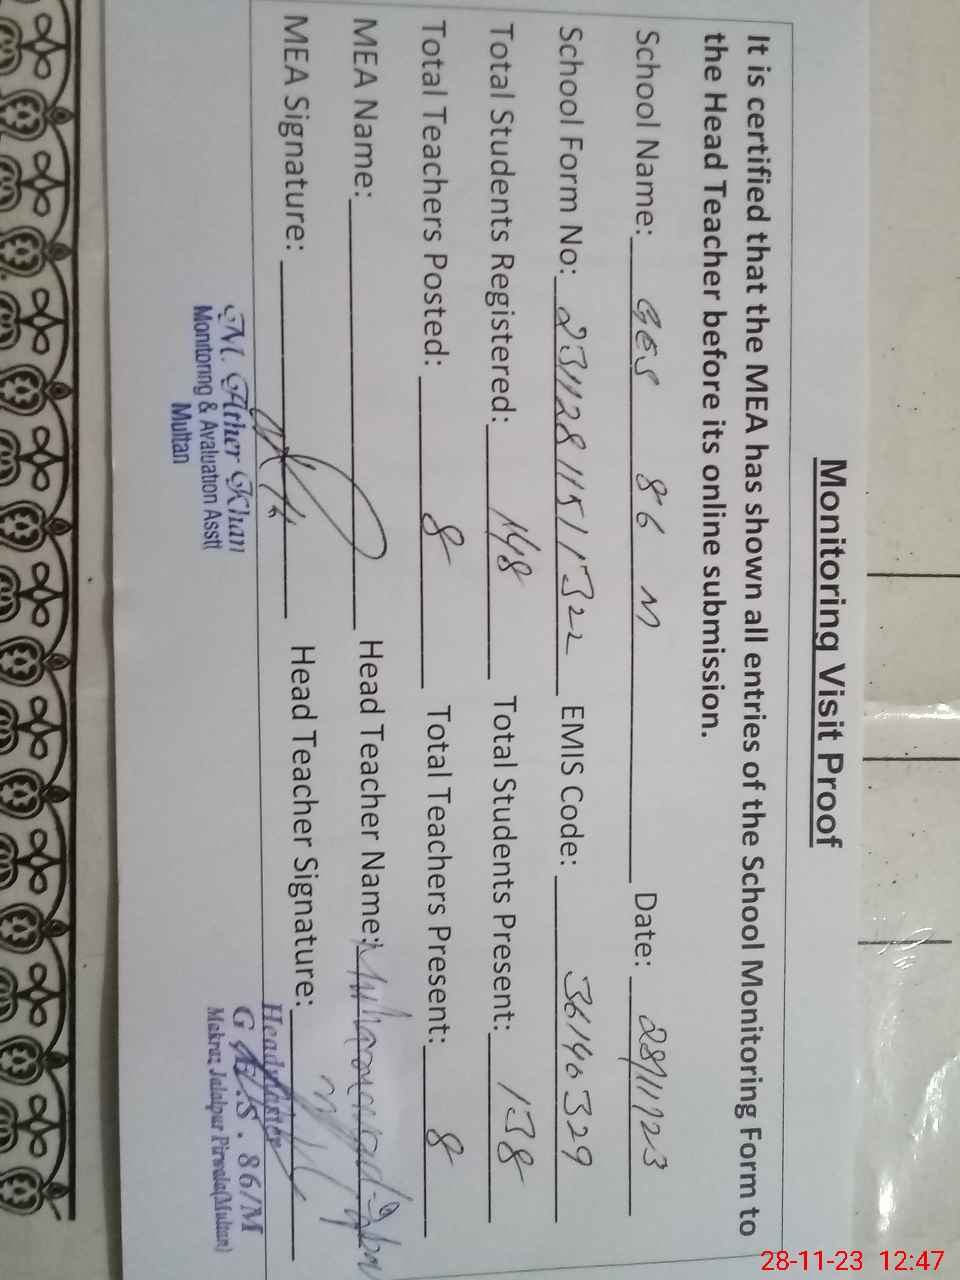 Monitoring Visit Proof
It is certified that the MEA has shown all entries of the School Monitoring Form to
the Head Teacher before its online submission.
School Name: GES 86 M Date: 28/11/23
School Form No: 23112811511322 EMIS Code: 36140329
Total Students Registered: 148 Total Students Present: 138
Total Teachers Posted: 8 Total Teachers Present: 8
MEA Name: Head Teacher Name: Muhammad
MEA Signature: Head Teacher Signature:
M. Ather Khan
Monitoring & Avaluation Asstt
Multan
HeadMaster
G.E.S. 86/M
Makraz Jalalpur Pirwala(Multan)
28-11-23 12:47